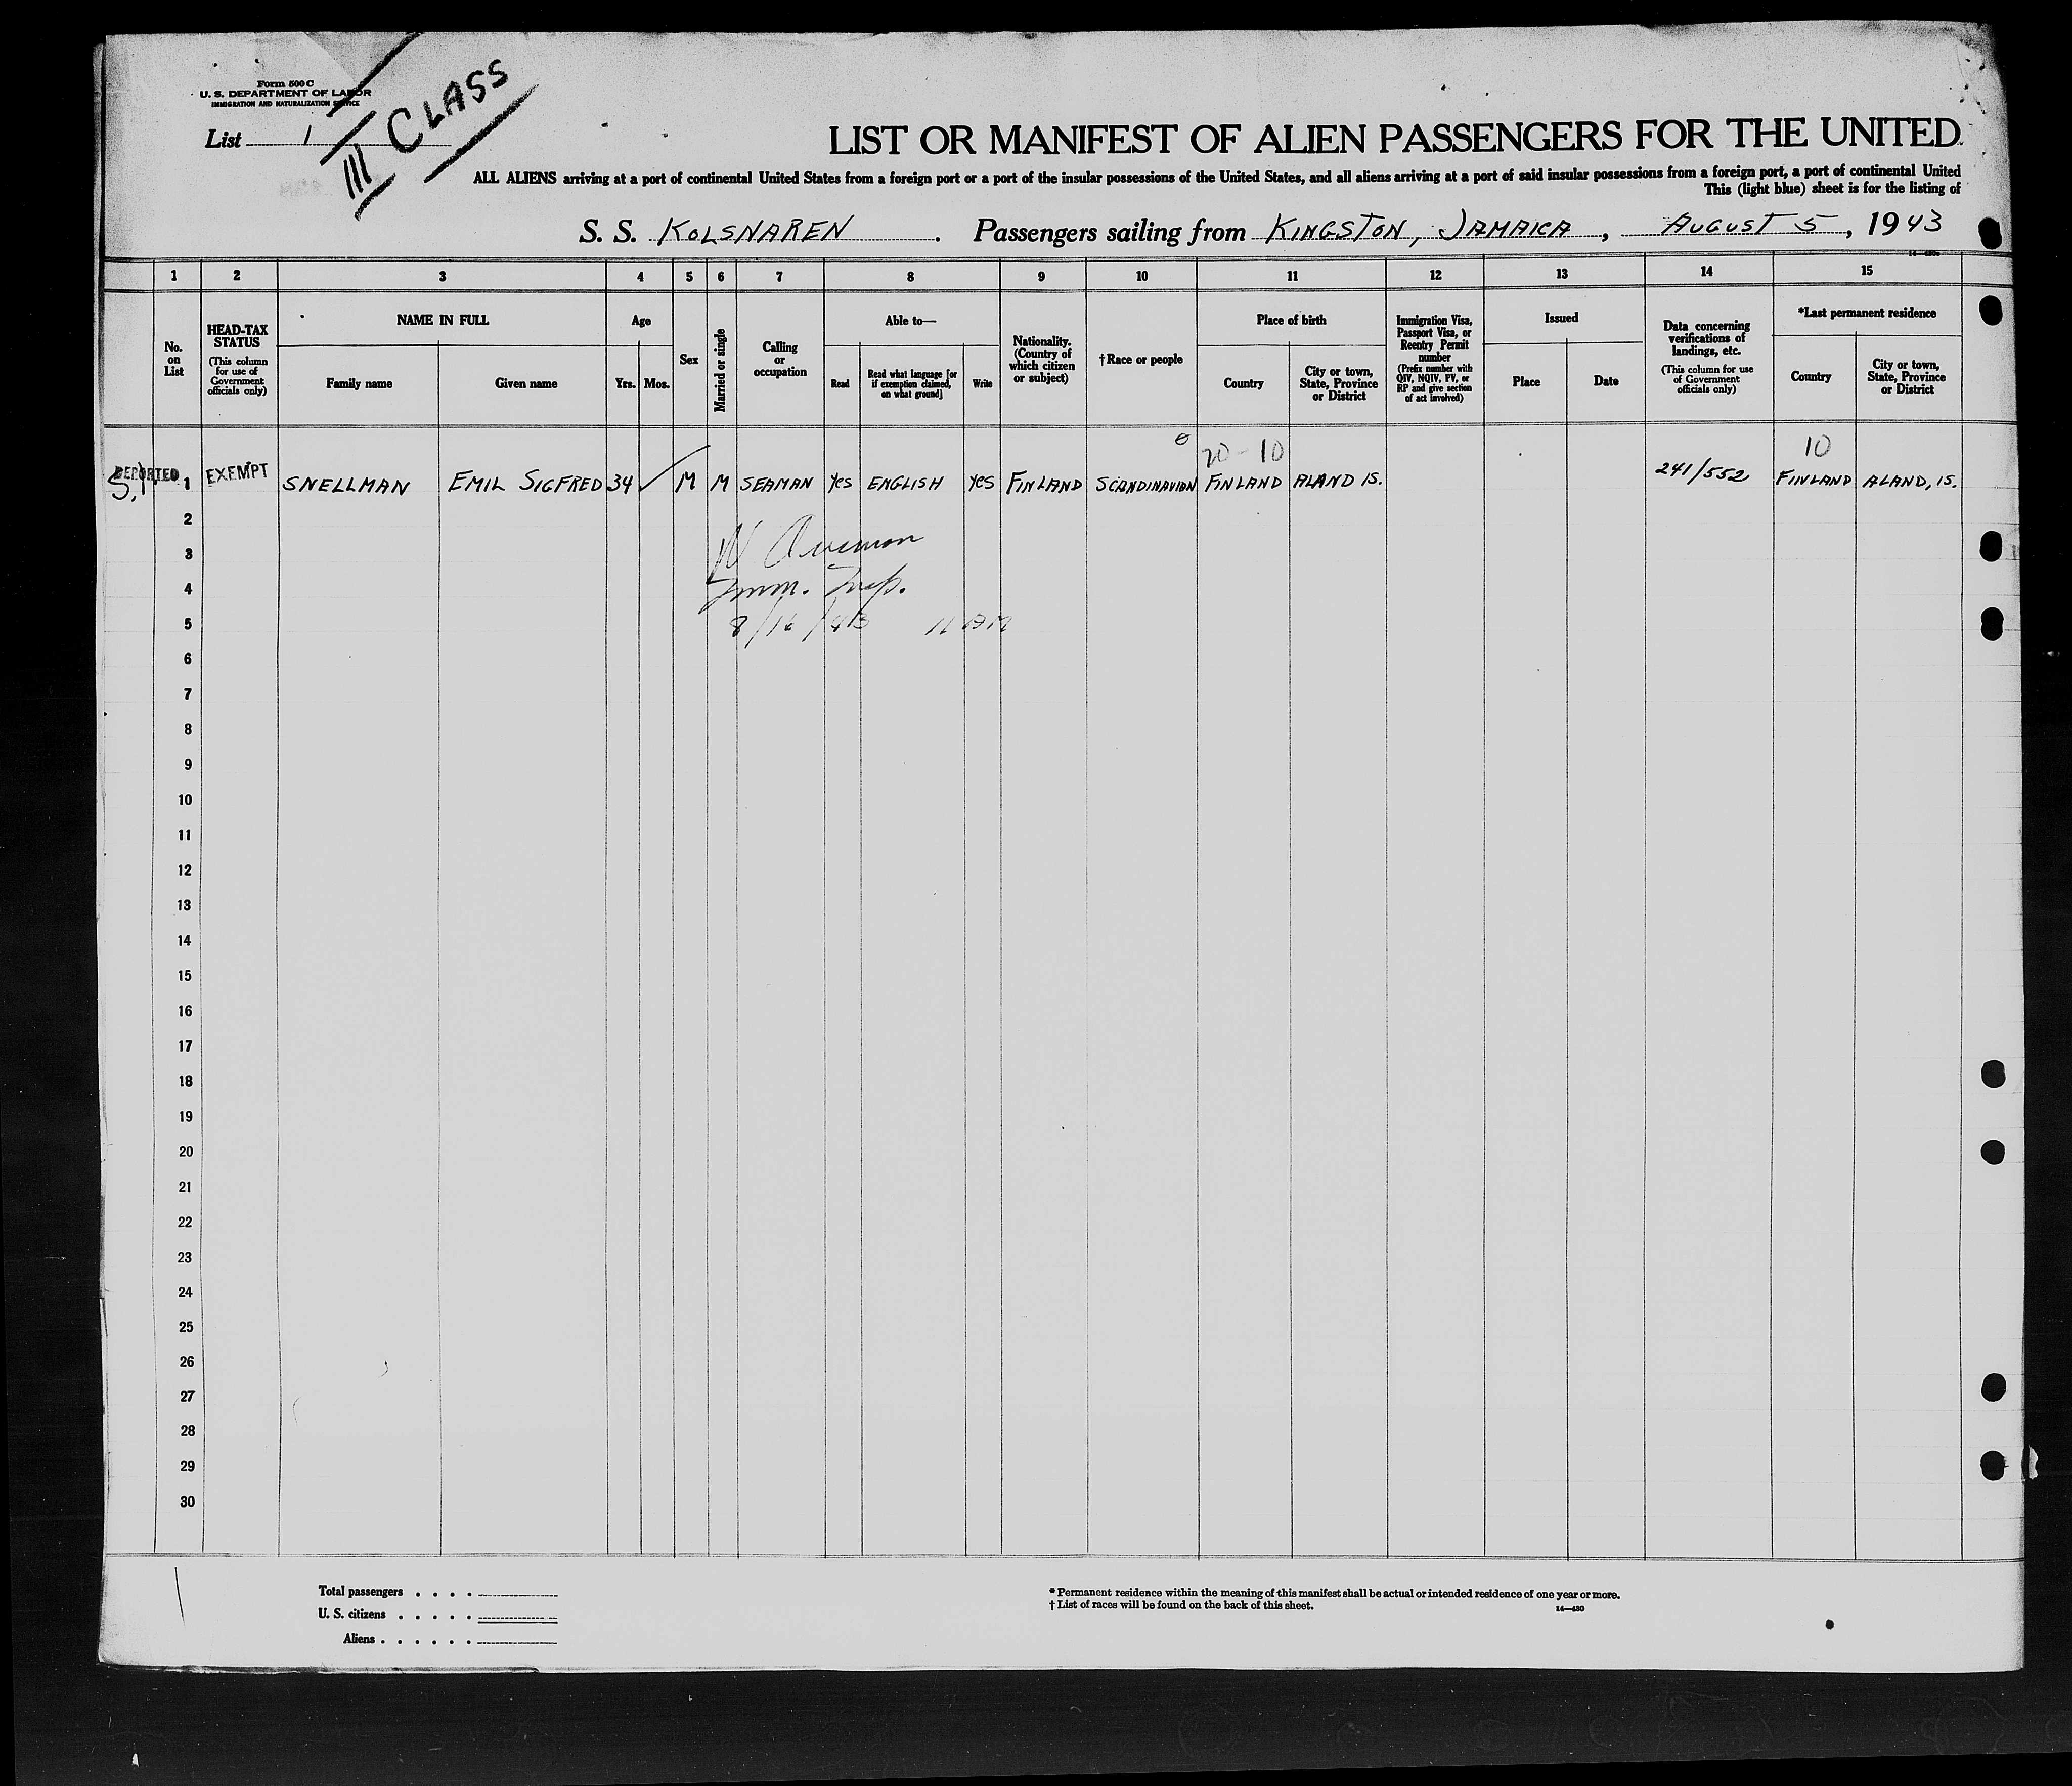 Form 500 C
U. S. DEPARTMENT OF LABOR
IMMIGRATION AND NATURALIZATION SERVICE
List 1
III CLASS
LIST OR MANIFEST OF ALIEN PASSENGERS FOR THE UNITED
ALL ALIENS arriving at a port of continental United States from a foreign port or a port of the insular possessions of the United States, and all aliens arriving at a port of said insular possessions from a foreign port, a port of continental United
This (light blue) sheet is for the listing of
S. S. KOLSNAREN . Passengers sailing from KINGSTON, JAMAICA, AUGUST 5, 1943
1 2 3 4 5 6 7 8 9 10 11 12 13 14 15
No. on List
HEAD-TAX STATUS (This column for use of Government officials only)
NAME IN FULL
Family name Given name
Age
Yrs. Mos.
Sex
Married or single
Calling or occupation
Able to—
Read
Read what language [or if exemption claimed, on what ground]
Write
Nationality. (Country of which citizen or subject)
†Race or people
Place of birth
Country
City or town, State, Province or District
Immigration Visa, Passport Visa, or Reentry Permit number (Prefix number with QIV, NQIV, PV, or RP and give section of act involved)
Issued
Place Date
Data concerning verifications of landings, etc. (This column for use of Government officials only)
*Last permanent residence
Country
City or town, State, Province or District
20-10 10
DEPORTED 1 EXEMPT SNELLMAN EMIL SIGFRED 34 M M SEAMAN yes ENGLISH yes FINLAND SCANDINAVIAN FINLAND ALAND IS. 241/552 FINLAND ALAND, IS.
2
3
4 Imm. Insp.
5
6
7
8
9
10
11
12
13
14
15
16
17
18
19
20
21
22
23
24
25
26
27
28
29
30
Total passengers . . . .
U. S. citizens . . . . .
Aliens . . . . . .
* Permanent residence within the meaning of this manifest shall be actual or intended residence of one year or more.
† List of races will be found on the back of this sheet.
14—430